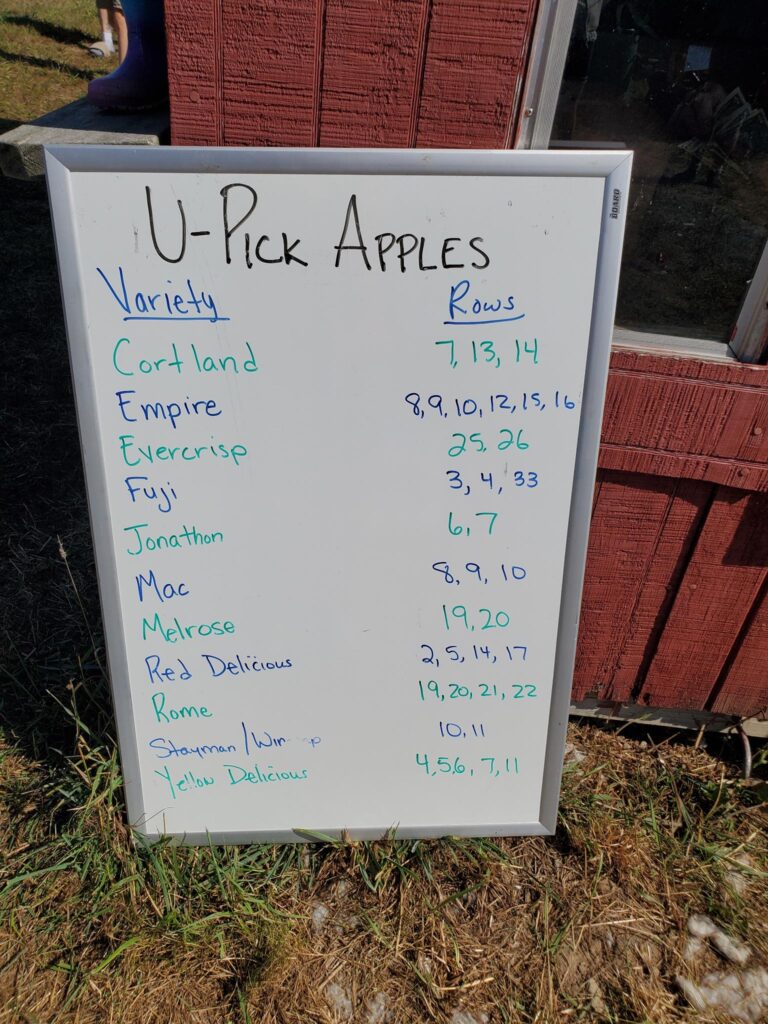 U-Pick Apples
Variety Rows
Cortland 7, 13, 14
Empire 8, 9, 10, 12, 15, 16
Evercrisp 25, 26
Fuji 3, 4, 33
Jonathon 6, 7
Mac 8, 9, 10
Melrose 19, 20
Red Delicious 2, 5, 14, 17
Rome 19, 20, 21, 22
Stayman/ 10, 11
Yellow Delicious 4, 5, 6, 7, 11
BOARD